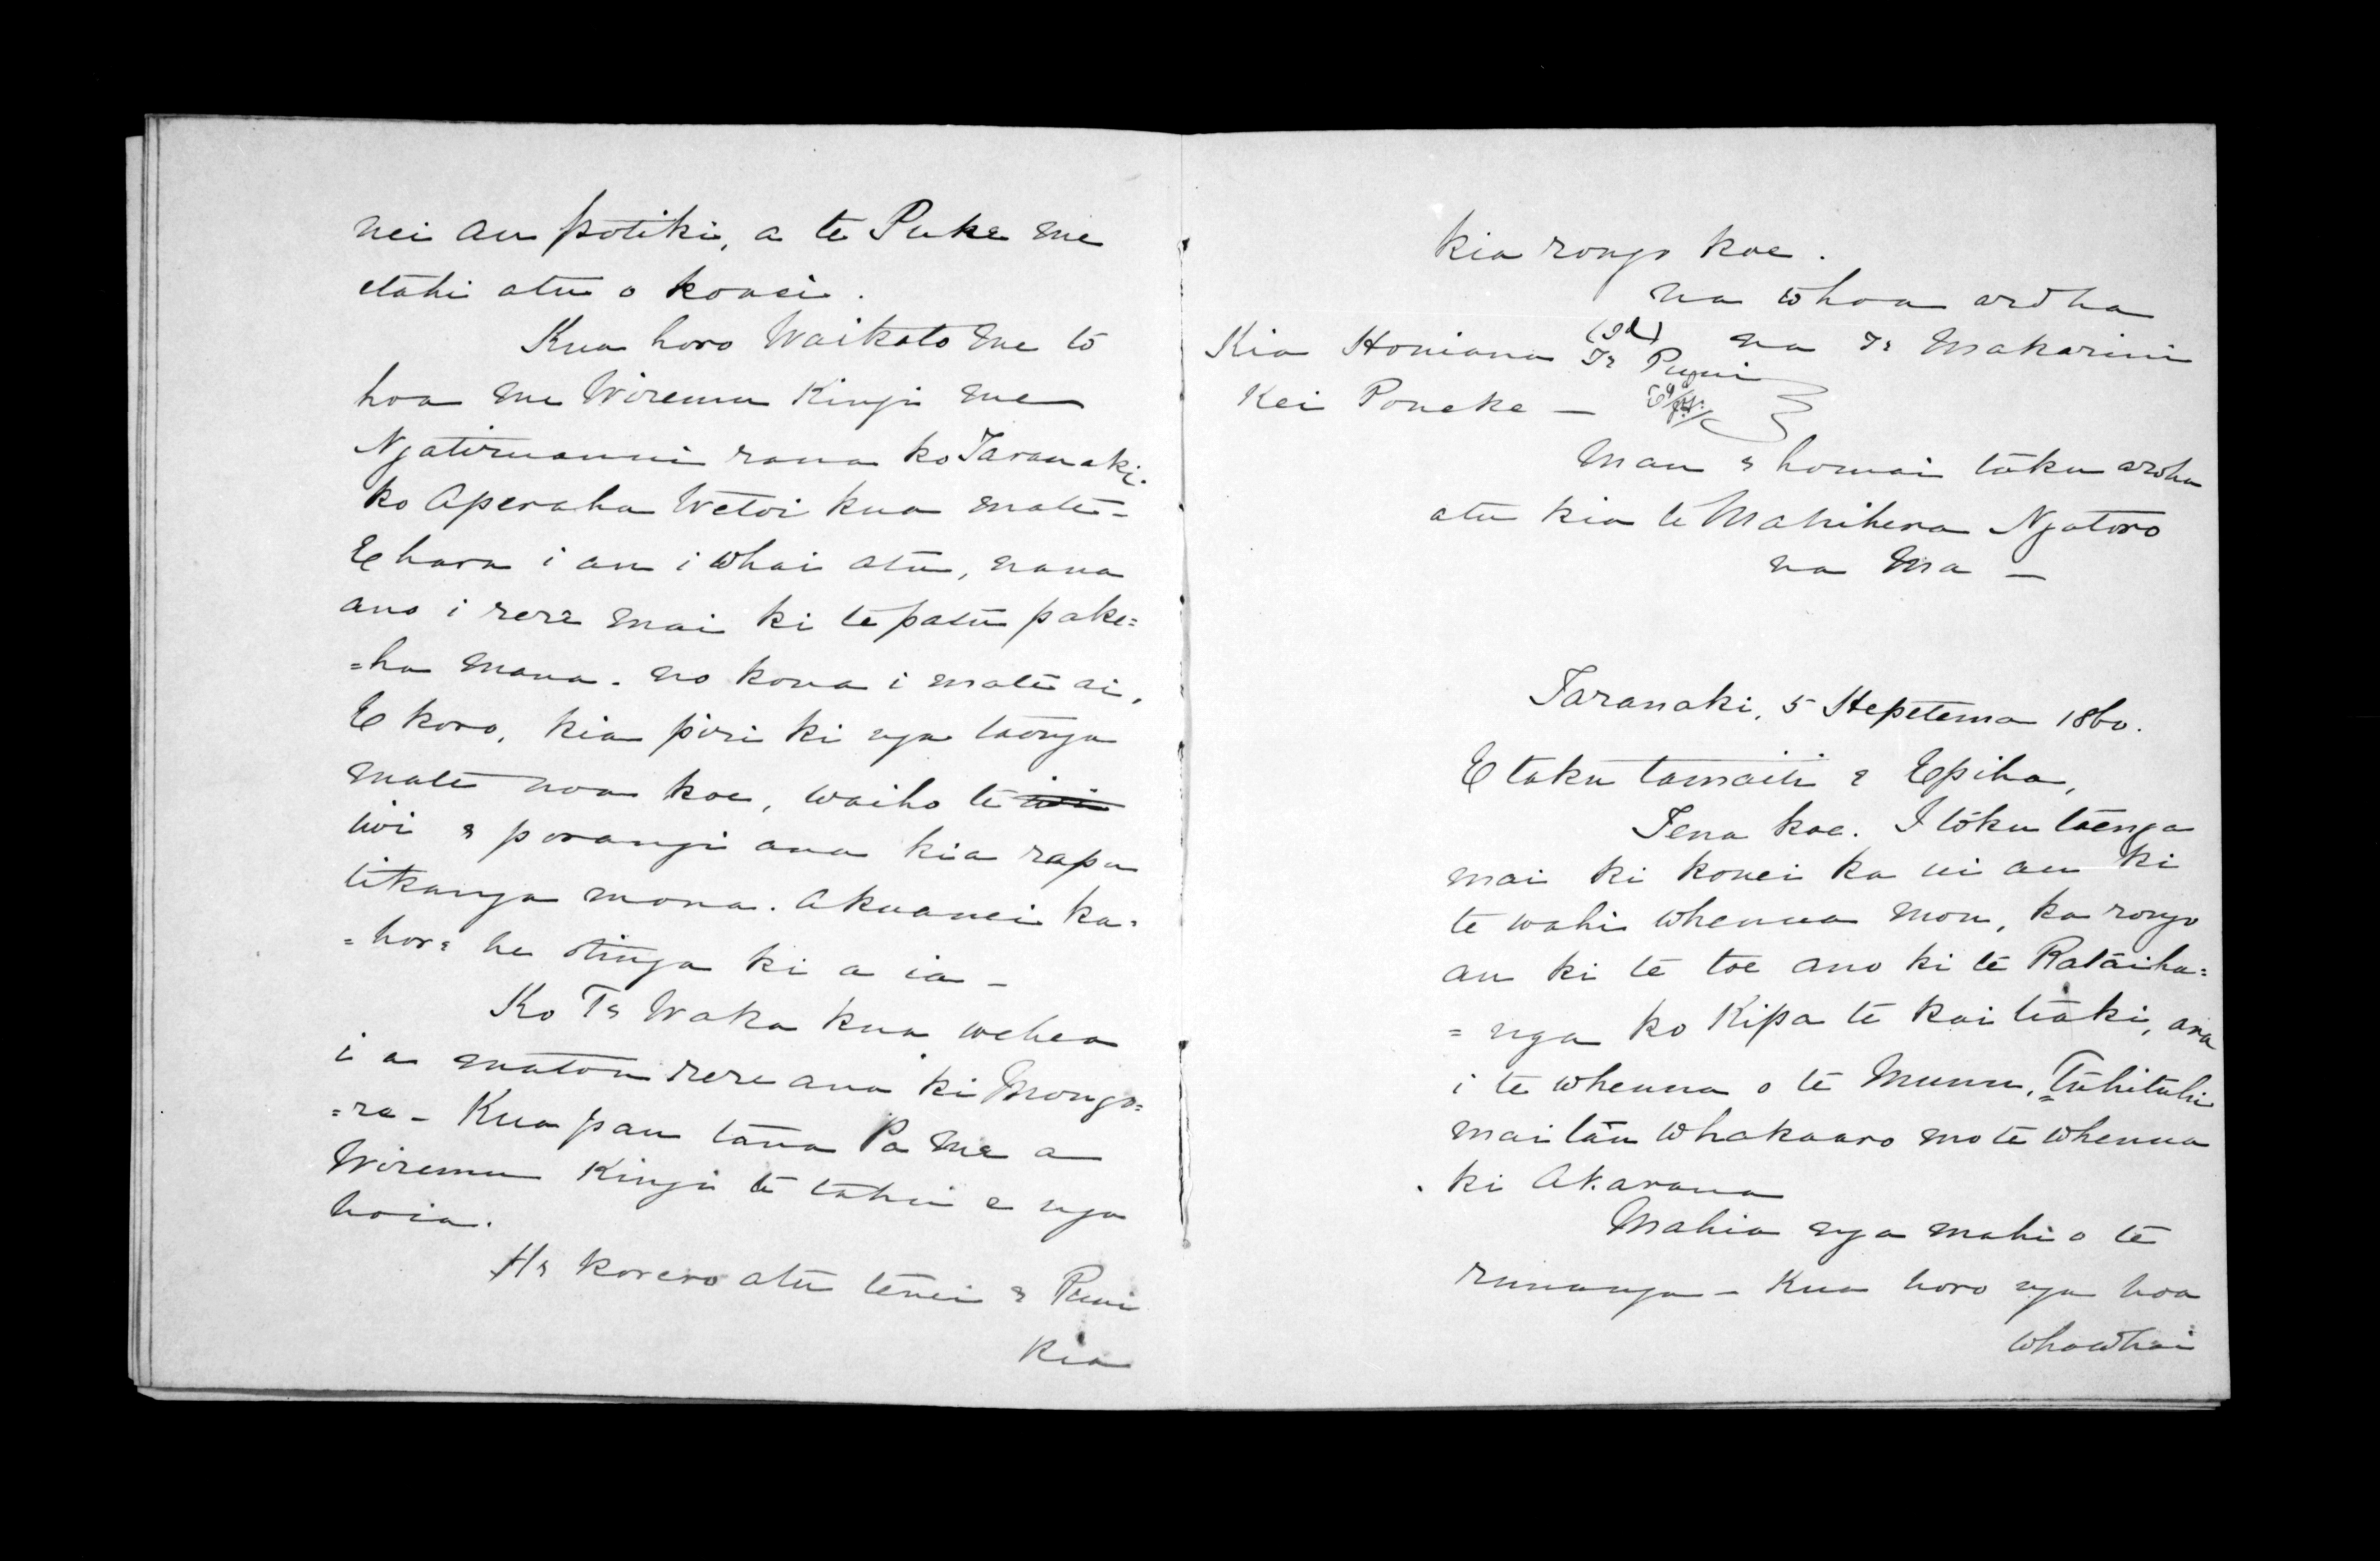 nei au potiki, a te Puke me
etahi atu o konei.
Kua horo Waikato me to
hoa me Wiremu Kingi me
Ngatiruanui raua ko Taranaki.
ko Aperaha Wetoi kua mate-
E hara i au i whai atu, nana
ano i rere mai ki te patu pake=
=ha mana. no kona i mate ai,
E koro, kia piri ki nga taonga
mate noa koe, waiho te iwi
iwi e porangi ana kia rapu
tikanga mona. Akuanei ka=
=hore he otinga ki a ia -
Ko Te Waka kua wehea
i a matou rere ana ki Mongo=
=ra - Kua pau tana Pa me a
Wiremu Kingi te tahu e nga
hoia.
He korero atu tenei e Puni
Kia
kia rongo koe.
na to hoa aroha
(Sd) na Te Makarini
Kia Honiana Te Puni
Kei Poneke -
Mau e homai taku aroha
atu kia te Mahihera Ngatoro
na Ma -
Taranaki, 5 Hepetema 1860.
E taku tamaiti e Epiha,
Tena koe. I toku taenga
mai ki konei ka ui au ki
te wahi whenua mou, ka rongo
au ki te toe ano ki te Rataiha=
=nga ko Kipa te kai tiaki, ara
i te whenua o te Mumu, Tuhituhi
mai tau whakaaro mo te whenua
ki Akarana
Mahia nga mahi o te
runanga - Kua horo nga hoa
whawhai